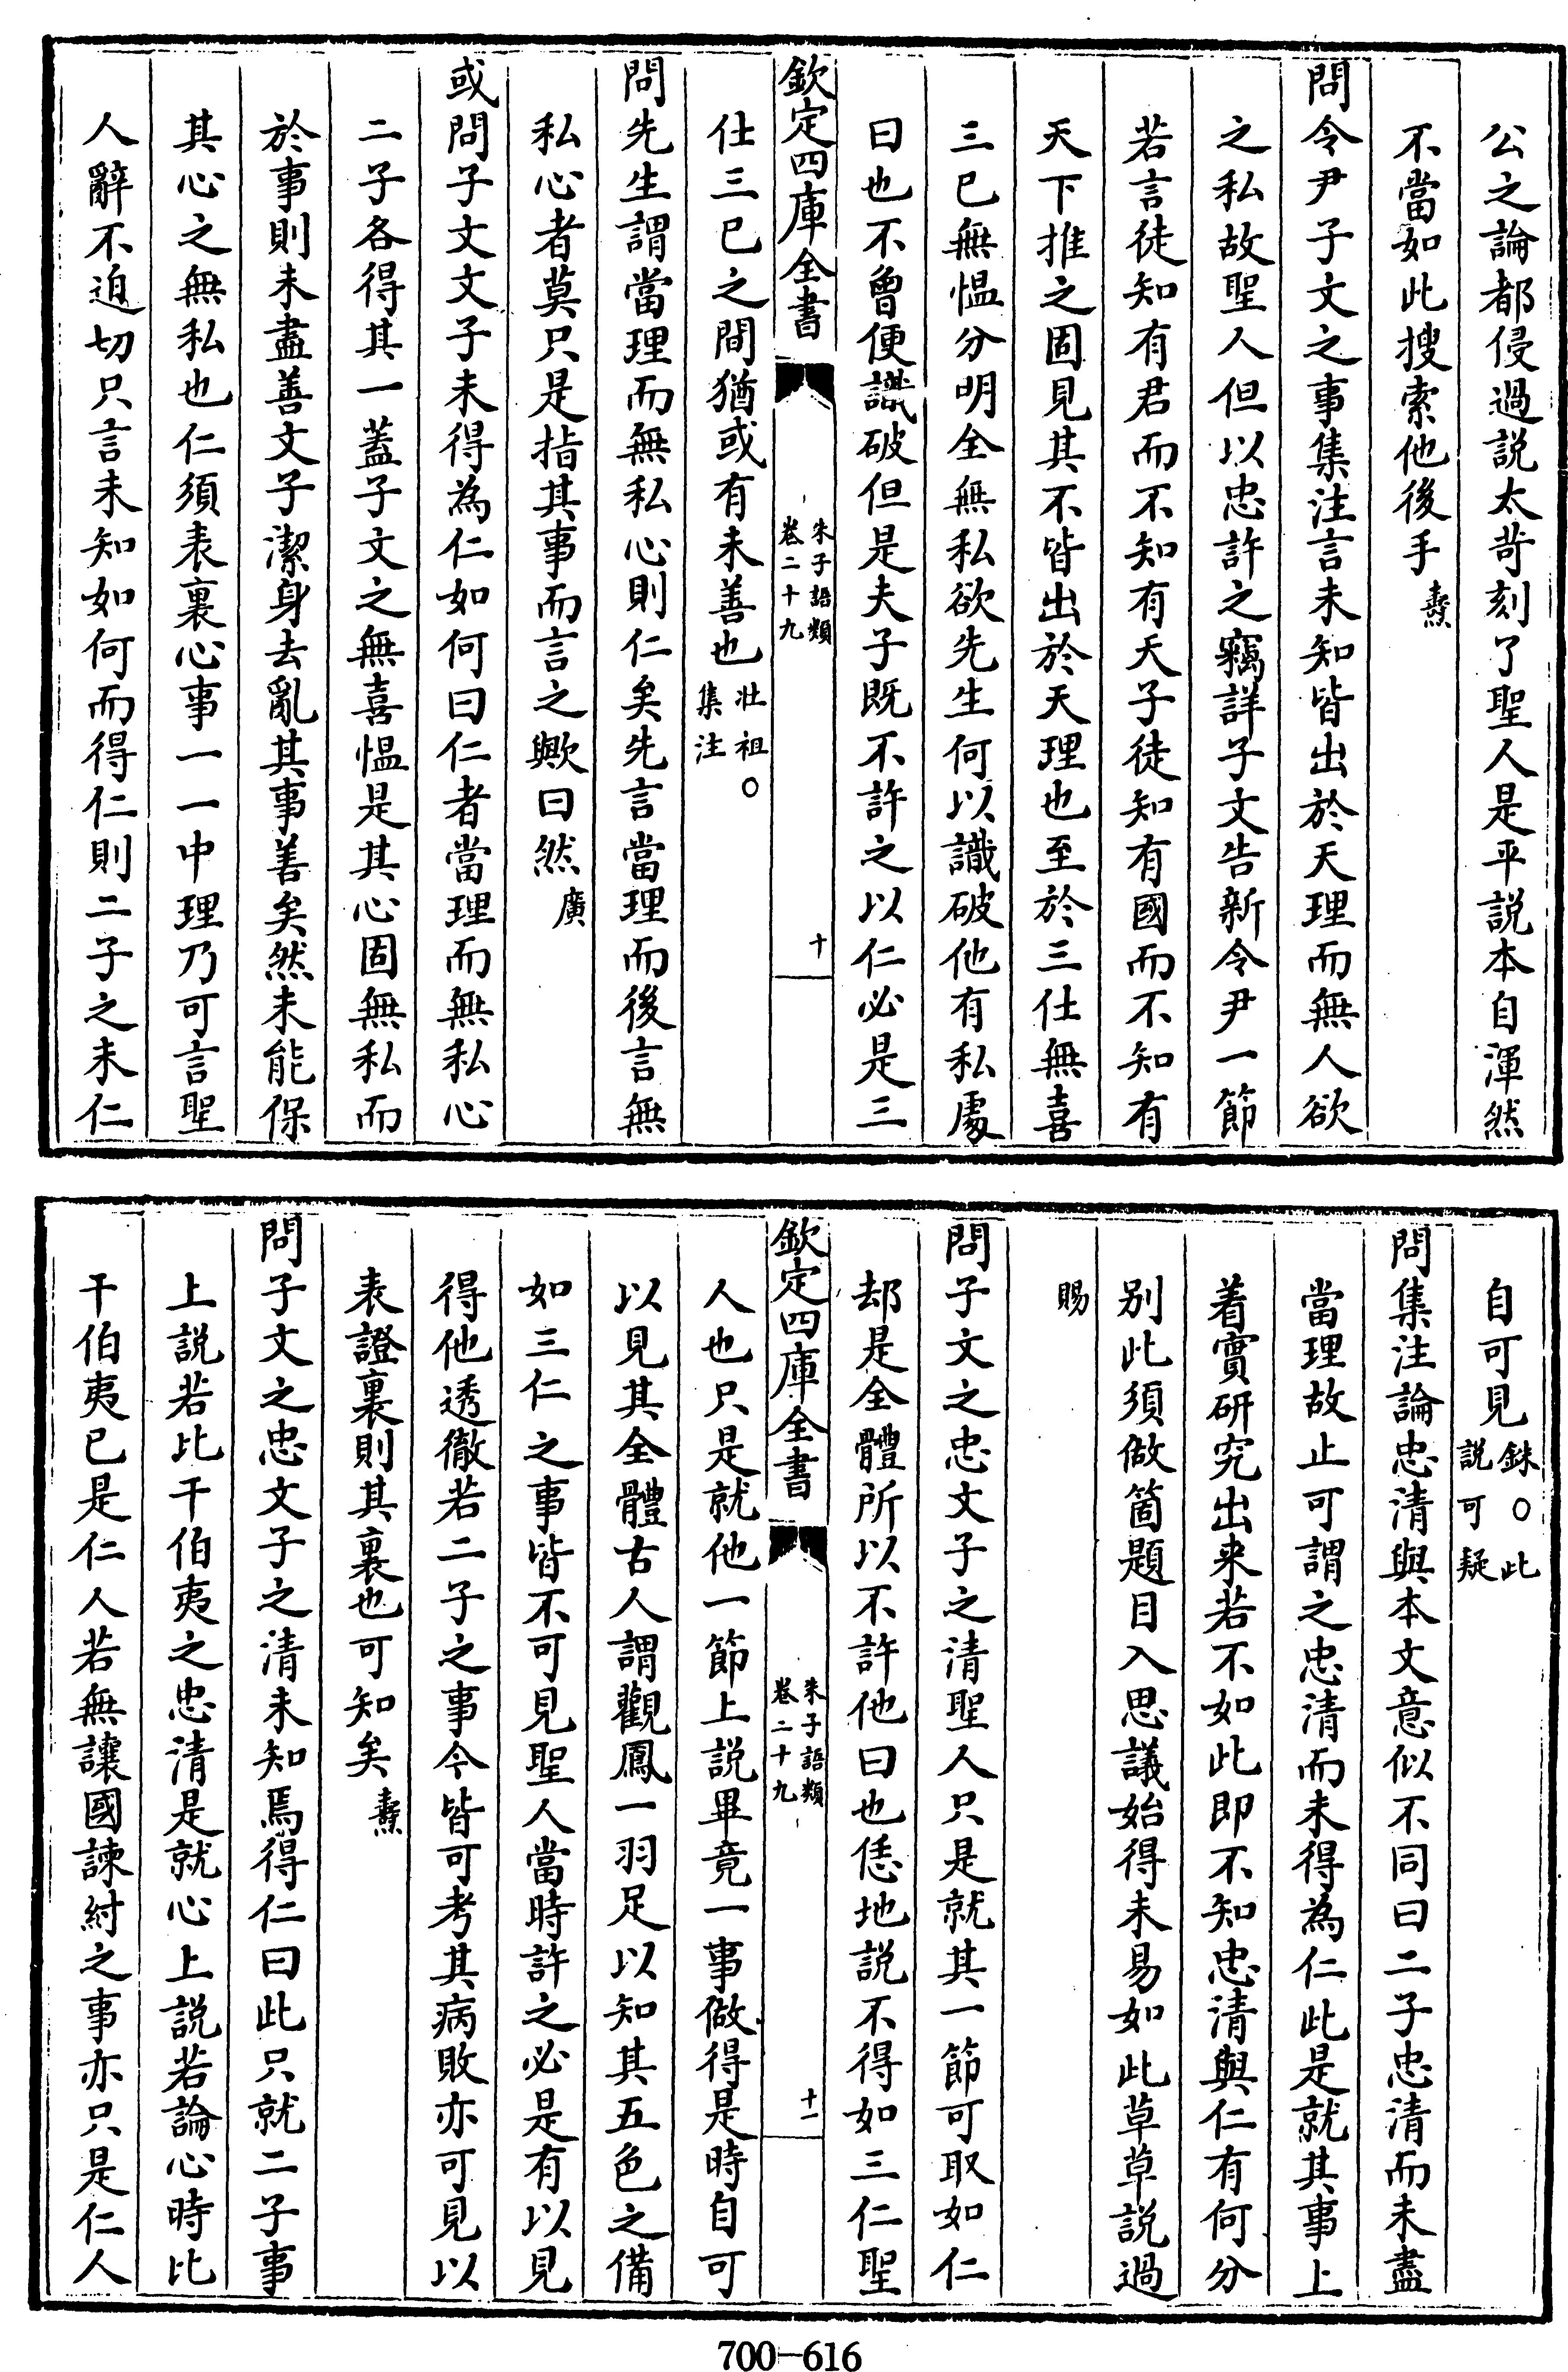 公之論都侵過說太苛刻了聖人是平說本自渾然
不當如此搜索他後手 燾
問令尹子文之事集注言未知皆出於天理而無人欲
之私故聖人但以忠許之竊詳子文告新令尹一節
若言徒知有君而不知有天子徒知有國而不知有
天下推之固見其不皆出於天理也至於三仕無喜
三已無愠分明全無私欲先生何以識破他有私處
曰也不曾便識破但是夫子既不許之以仁必是三
欽定四庫全書
朱子語類
卷二十九
十
仕三已之間猶或有未善也 壯祖○
集注
問先生謂當理而無私心則仁矣先言當理而後言無
私心者莫只是指其事而言之歟曰然 廣
或問子文文子未得為仁如何曰仁者當理而無私心
二子各得其一蓋子文之無喜愠是其心固無私而
於事則未盡善文子潔身去亂其事善矣然未能保
其心之無私也仁須表裏心事一一中理乃可言聖
人辭不迫切只言未知如何而得仁則二子之未仁
自可見 銖○此
說可疑
問集注論忠清與本文意似不同曰二子忠清而未盡
當理故止可謂之忠清而未得為仁此是就其事上
着實研究出来若不如此即不知忠清與仁有何分
別此須做箇題目入思議始得未易如此草草說過
賜
問子文之忠文子之清聖人只是就其一節可取如仁
却是全體所以不許他曰也恁地說不得如三仁聖
欽定四庫全書
朱子語類
卷二十九
十一
人也只是就他一節上說畢竟一事做得是時自可
以見其全體古人謂觀鳳一羽足以知其五色之備
如三仁之事皆不可見聖人當時許之必是有以見
得他透徹若二子之事今皆可考其病敗亦可見以
表證裏則其裏也可知矣 燾
問子文之忠文子之清未知焉得仁曰此只就二子事
上說若比干伯夷之忠清是就心上說若論心時比
干伯夷已是仁人若無讓國諫紂之事亦只是仁人
700-616